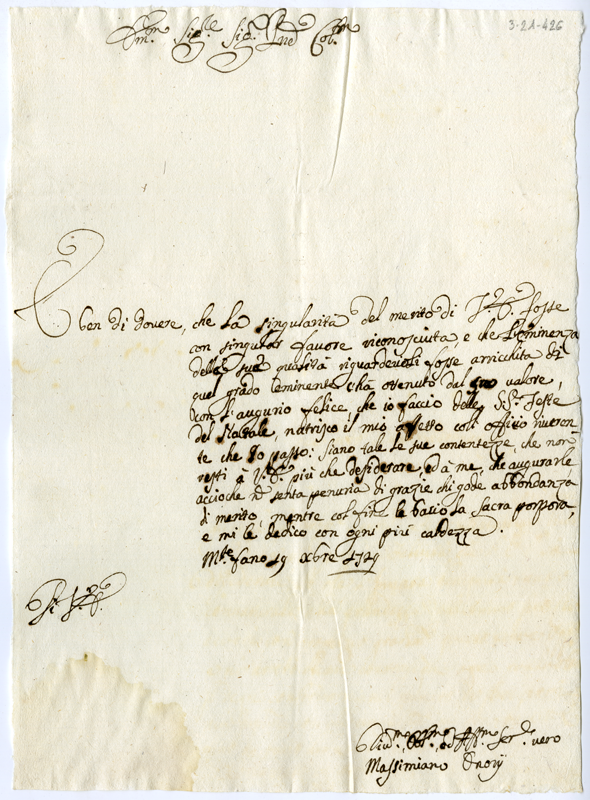 3-21-426
Em.mo Sig.re Sig.re Pne Col.mo
Eran di dovere, che la singolarità del merito di V. E. fosse
con singular favore riconosciuta, e che l'eminenza
delle sue qualità riguardevoli fosse arricchita di
quel grado eminente c'hà ottenuto dal suo valore,
con l'augurio felice, che io faccio delle SS.e Feste
del Natale, nutrisco il mio affetto con officio riveren-
te che Io passo: siano tale le sue contentezze, che non
resti à V. E. più che desiderare, ed à me, che augurarle
accioche nõ senta penuria di grazie chi gode abbondanza
di merito, mentre col fine le bacio la Sacra porpora,
e mi le dedico con ogni più caldezza.
M.te fano 19 Xbre 1729
Di V. E.
vero
Massimiano